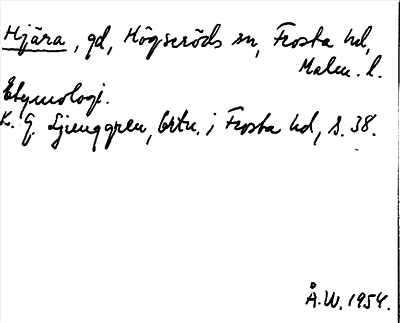 Hjära, gd, Högseröds sn, Frosta hd,
Malm. l.
Etymologi.
K. G. Ljunggren, Ortn. i Frosta hd, s. 38.
Å.W. 1954.